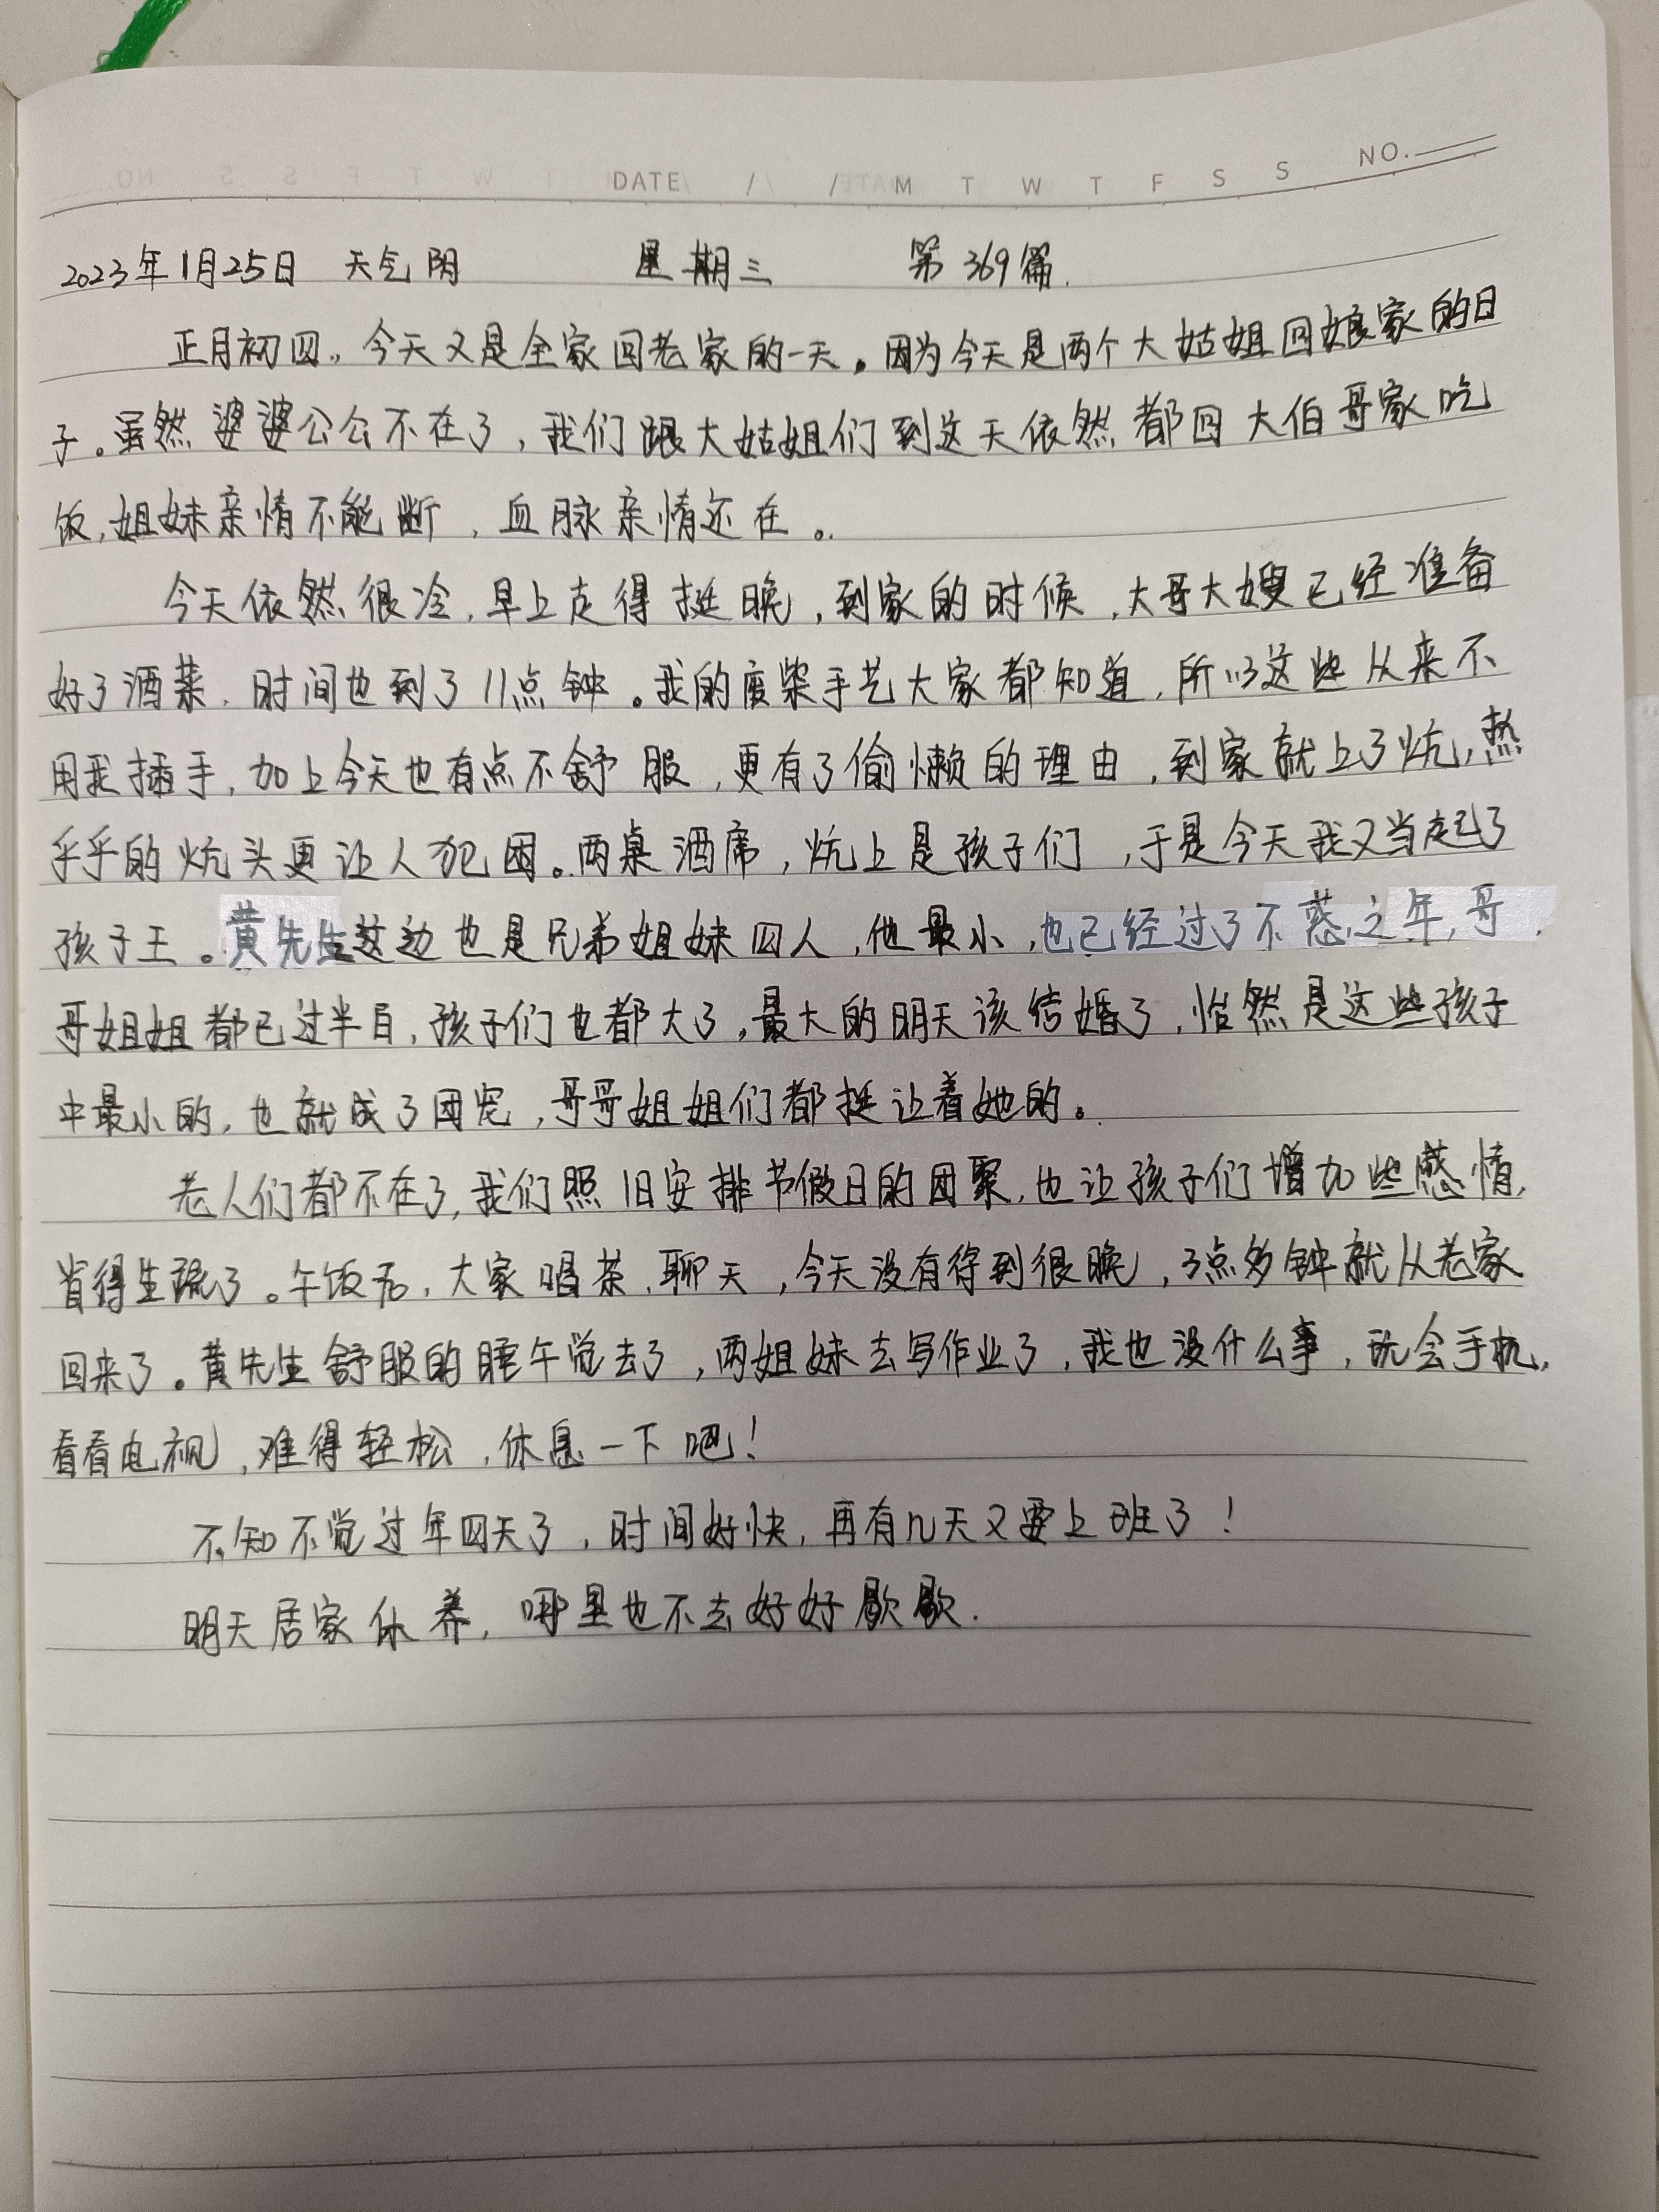 DATE / / M T W T F S S NO.
2023年1月25日 天气阴 星期三 第369篇.
正月初四。今天又是全家回老家的一天。因为今天是两个大姑姐回娘家的日
子。虽然婆婆公公不在了,我们跟大姑姐们到这天依然都回大伯哥家吃
饭,姐妹亲情不能断,血脉亲情还在。
今天依然很冷,早上走得挺晚,到家的时候,大哥大嫂已经准备
好了酒菜,时间也到了11点钟。我的废柴手艺大家都知道,所以这些从来不
用我插手,加上今天也有点不舒服,更有了偷懒的理由,到家就上了炕,热
乎乎的炕头更让人犯困。两桌酒席,炕上是孩子们,于是今天我又当起了
孩子王。黄先生这边也是兄弟姐妹四人,他最小,也已经过了不惑之年,哥
哥姐姐都已过半百,孩子们也都大了,最大的明天该结婚了,怡然是这些孩子
中最小的,也就成了团宠,哥哥姐姐们都挺让着她的。
老人们都不在了,我们照旧安排节假日的团聚,也让孩子们增加些感情,
省得生疏了。午饭后,大家喝茶,聊天,今天没有待到很晚,3点多钟就从老家
回来了。黄先生舒服的睡午觉去了,两姐妹去写作业了,我也没什么事,玩会手机,
看看电视,难得轻松,休息一下吧!
不知不觉过年四天了,时间好快,再有几天又要上班了!
明天居家休养,哪里也不去好好歇歇.